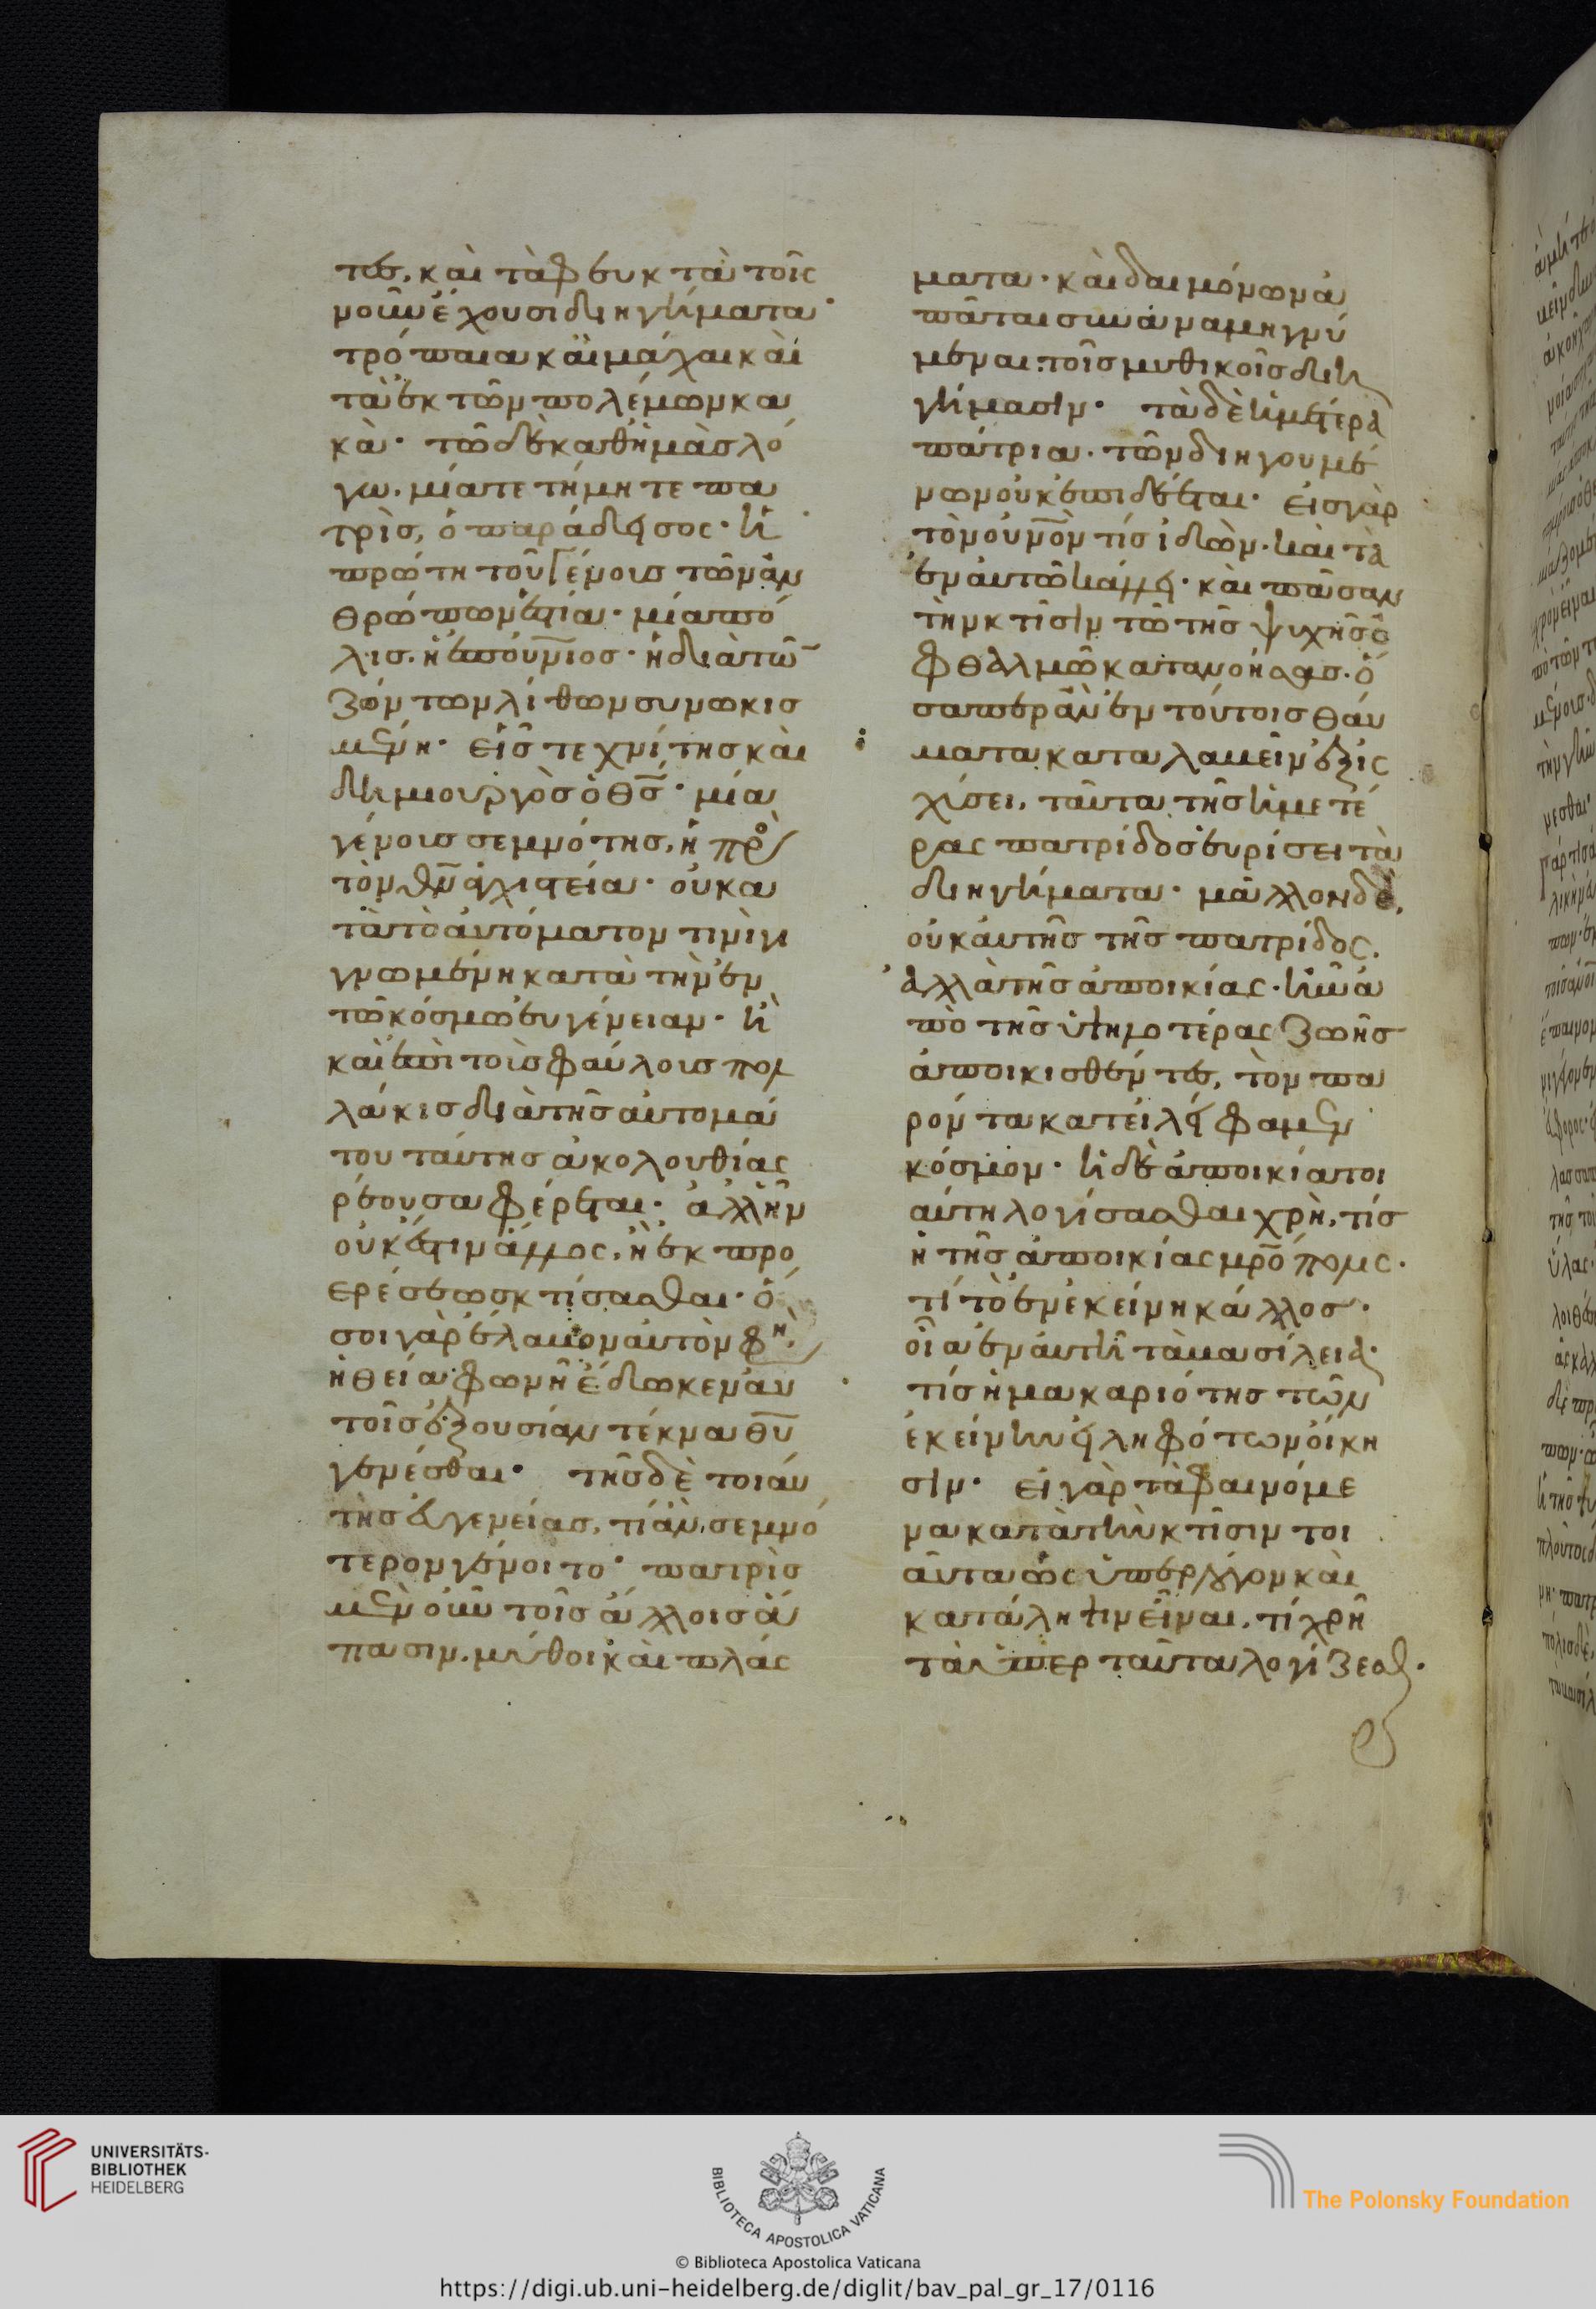 τες, καὶ τὰ φευκτὰ τοῖς
νοῦν ἔχουσι διηγήματα·
τρόπαια καὶ μάχαι καὶ
τὰ ἐκ τῶν πολέμων κα
κὰ· τῶ δὲ καθ' ἡμᾶς λό
γω. μία τε τήμη τε πα
τρὶς, ὁ παράδεισος· ἡ
πρώτη τοῦ γένους τῶν ἀν
θρώπων ἑστία· μία πό
λις. ἡ ἐπουνιος· ἡ διὰ τῶ
ζόντων λίθων συνωκισ
μένη· εἷς τεχνίτης καὶ
δημιουργὸς ὁ θς· μία
γένους σεμνότης, ἡ πρὸς
τὸν θν ἀγχιστεία· οὐ κα
τὰ τὸ αὐτόματον τιμὶ γι
γνωμένη κατὰ τὴν ἐν
τῶ κόσμω εὐγένειαν· ἣ
καὶ ἐπὶ τοὺς φαύλους πολ
λάκις διὰ τῆς αὐτομά
του ταύτης ἀκολουθίας
ῥέουσα φέρεται· ἀλλ' ἣν
οὐκ ἔστιν ἄλλως, ἢ ἐκ προ
ερέσεως κτίσασθαι· ὅ
σοι γὰρ ἔλαβον αὐτὸν φη
ἡ θεία φωνὴ ἔδωκεν αὐ
τοῖς ἐξουσίαν τέκνα θυ
γενέσθαι· τῆς δὲ τοιαύ
της εὐγενείας, τί ἂν σεμνό
τερον γένοιτο· πατρὶς
μὲν οὖν τοῖς ἄλλοις ἅ
πασιν. μύθοι καὶ πλάς
ματα· καὶ δαιμόνων ἀ
πάται συναναμηγνύ
μεναι τοῖς μυθικοῖς διη
γήμασιν· τὰ δὲ ἡμέτερα
πάτρια. τῶν διηγουμέ
νων οὐκ ἐπιδέεται· εἰς γὰρ
τὸν οὐνον τίς ἰδὼν. καὶ τὰ
ἐν αὐτῶ κάλλη· καὶ πᾶσαν
τὴν κτίσιν τῶ τῆς ψυχῆς ὀ
φθαλμῶ κατανοήσας. ὅ
σαπερ ἂν ἐν τούτοις θαύ
ματα καταλαβεῖν ἐξις
χύσει, ταῦτα τῆς ἡμετέ
ρας πατρίδος εὑρίσει τὰ
διηγήματα· μᾶλλον δὲ,
οὐκ αὐτῆς τῆς πατρίδος.
ἀλλὰ τῆς ἀποικίας. ἣν ἀ
πὸ τῆς ὑψηλοτέρας ζωῆς
ἀποικισθέντες, τὸν πα
ρόντα κατείληφαμεν
κόσμον· ἡ δὲ ἀποικία τοι
αύτη λογίσασθαι χρὴ, τίς
ἡ τῆς ἀποικίας μρόπολις.
τί τὸ ἐν ἐκείνη κάλλος·
οἷα ἐν αὐτῆ τὰ βασίλεια·
τίς ἡ μακαριότης τῶν
ἐκείνην εἰληφότων οἴκη
σιν· εἰ γὰρ τὰ φαινόμε
να κατὰ τὴν κτίσιν τοι
αῦτα ὡς ὑπὲρ λόγον καὶ
κατάληψιν εἶναι, τί χρῆ
τὰ ὑπερ ταῦτα λογίζεσθ.
UNIVERSITÄTS-
BIBLIOTHEK
HEIDELBERG
BIBLIOTECA APOSTOLICA VATICANA
The Polonsky Foundation
© Biblioteca Apostolica Vaticana
https://digi.ub.uni-heidelberg.de/diglit/bav_pal_gr_17/0116